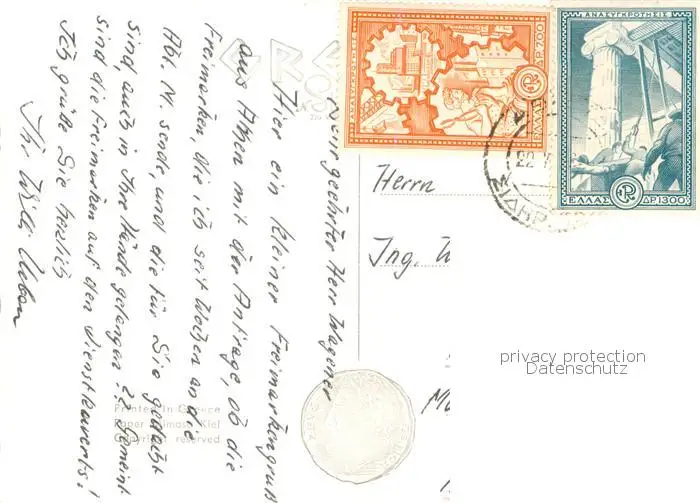 Sehr geehrter Herr Wagener
Hier ein kleiner Freimarkengruß
aus Athen mit der Anfrage, ob die
Freimarken, die ich seit Wochen an die
Abt. IV. sende, und die für Sie gedacht
sind, auch in Ihre Hände gelangen?? Gemeint
sind die Freimarken auf den Dienstkuverts!
Ich grüße Sie herzlich
Ihr Willi
ΑΝΑΣΥΓΚΡΟΤΗΣΙΣ
ΕΛΛΑΣ ΔΡ.700
ΑΝΑΣΥΓΚΡΟΤΗΣΙΣ
ΕΛΛΑΣ ΔΡ.1300
22
Herrn
Ing. W
privacy protection
Datenschutz
Printed in Greece
Paper Mimosa Kiel
Copyright reserved